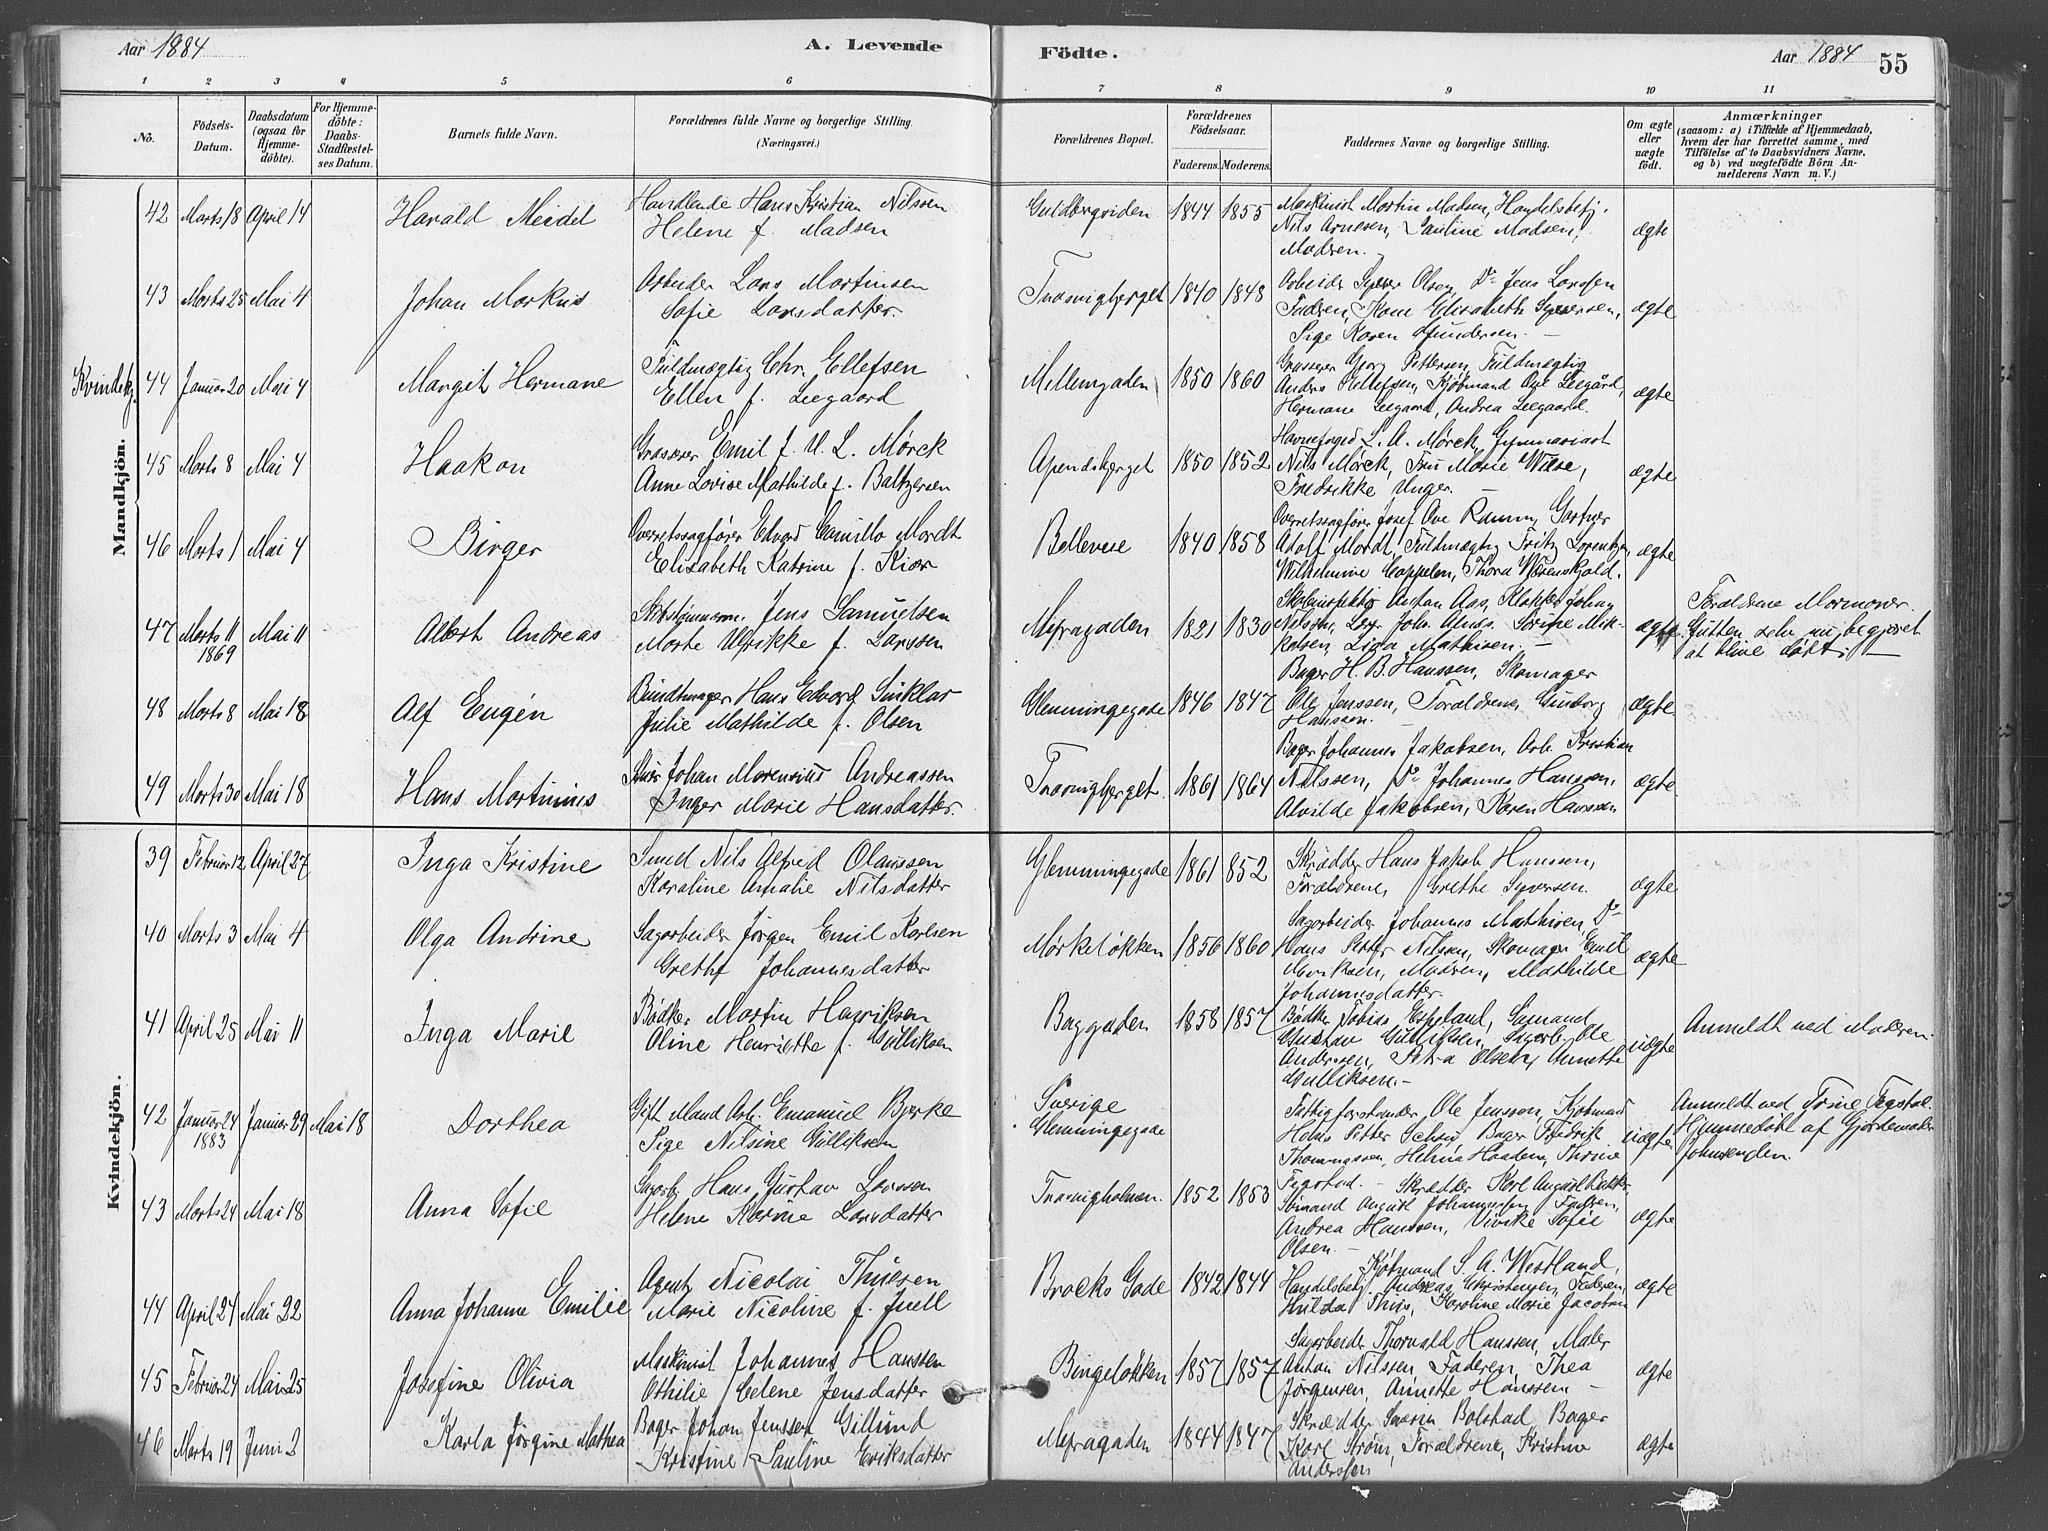 Aar 1884
A. Levende
Födte.
Aar 1884
55
1 2 3 4 5 6 7 8 9 10 11
No.
Födsels-Datum.
Daabsdatum (ogsaa for Hjemmedöbte).
For Hjemmedöbte: Daabs-Stadfæstelses Datum.
Barnets fulde Navn.
Forældrenes fulde Navne og borgerlige Stilling. (Næringsvei.)
Forældrenes Bopæl.
Forældrenes Födselsaar.
Faderens. Moderens.
Faddernes Navne og borgerlige Stilling.
Om ægte eller uægte födt.
Anmærkninger
(saasom: a) i Tilfælde af Hjemmedaab, hvem der har forrettet samme, med Tilföielse af to Daabsvidners Navne, og b) ved uægtefödte Börn Anmelderens Navn m. V.)
Mandkjön.
42 Marts 18 April 14 Harald Meidel
Handlende Hans Kristian Nilssen
Helene f. Madsen
Guldbergsiden 1844 1855
Maskinist Martin Madsen, Handelsbetj.
Nils Arnesen, Pauline Madsen,
Modren.
ægte
43 Marts 25 Mai 4 Johan Markus
Arbeider Lars Martinsen
Sofie Larsdatter.
Traravigbjerget 1840 1848
Arbeider Syver Olsen, Do Jens Larssen
Fadren, Kone Elisabeth Syversen,
Pige Karen Gundersen.
ægte
Kvindekj.
44 Januar 20 Mai 4 Margit Hermane
Fuldmægtig Chr. Ellefsen
Ellen f. Leegaard
Mellemgaden 1850 1860
Grosserer Georg Pettersen, Fuldmægtig
Andrs Ellefsen, Kjøbmand Ove Leegård,
Hermane Leegaard, Andrea Leegaard.
ægte
45 Marts 8 Mai 4 Haakon
Grosserer Emil f. V. L. Mørck
Anne Lovise Mathilde f. Baltzersen
Apendsbjerget 1850 1852
Havnefoged L. A. Mørck, Gymnasiast
Nils Mørck, Fru Marie Wiese,
Fredrikke Unger.
ægte
46 Marts 1 Mai 4 Birger
Overretssagfører Edvard Camillo Mordt
Elisabeth Katrine f. Kiær
Bellevue 1840 1858
Overretssagfører Josef Ove Ramm, Gartner
Adolf Mordt, Fuldmægtig Fritz Lorentzen
Wilhelmine Cappelen, Thora Wesenskjold.
ægte
47 Marts 11 1869 Mai 11 Albert Andreas
Skibstømmerm. Jens Samuelsen
Marte Ulrikke f. Larssen
Mefragaden 1821 1830
Skoleinspektør Anstan Aas, Klokker Johan
Nilsen, Lær. Joh. Aas. Sørine Mik-
kelsen Lina Mathisen.
ægte
Forældrene Mormoner.
Gutten selv nu begjæret
at blive døbt.
48 Marts 8 Mai 18 Alf Eugén
Bundtmager Hans Edvard Sinklar
Julie Mathilde f. Olsen
Glemmingegade 1846 1847
Bager H. B. Hanssen, Skomager
Ole Jenssen, Forældrene, Gunborg
Hanssen.
ægte
49 Marts 30 Mai 18 Hans Martinius
Johan Morensius Andreassen
Inger Marie Hansdatter.
Traravigbjerget 1861 1864
Bager Johannes Jakobsen, Arb. Kristian
Nilssen, Do Johannes Hanssen,
Alvilde Jakobsen, Karen Hanssen
ægte
Kvindekjön.
39 Februar 12 April 27 Inga Kristine
Smed Nils Alfred Olaussen
Karoline Amalie Nilsdatter
Glemmingegade 1861 852
Skrædder Hans Jakob Hanssen,
Forældrene, Grethe Syversen.
ægte
40 Marts 3 Mai 4 Olga Andrine
Sagarbeider Jørgen Emil Karlsen
Grethe Johannesdatter
Mørkeløkken 1856 1860
Sagarbeider Johannes Mathisen, Do
Hans Petter Nilsen, Skomager Emil
Moriksen, Modren, Mathilde
Johannesdatter.
ægte
41 April 25 Mai 11 Inga Marie
Bødker Martin Henriksen
Oline Henriette f. Gulliksen
Baggaden 1858 1857
Bødker Tobias Espeland, Sømand
Gustav Gulliksen, Sagarb. Ole
Andersen, Petra Olsen, Annette
Gulliksen.
uægte
Anmeldt ved Moderen.
42 Januar 24 1883 Januar 29 Mai 18 Dorthea
Gift Mand Arb. Emanuel Bjerke
Pige Nilsine Gulliksen
Sverige
Glemmingegade
Fattigforstander Ole Jenssen, Kjøbmand
Hans Petter Schou, Bager Fredrik
Thomassen, Helma Haaden, Thrine
Fegstad.
uægte
Anmeldt ved Trine Fegstad.
Hjemmedøbt af Gjordemoder
Johnsenden.
43 Marts 24 Mai 18 Anna Sofie
Sagarb. Hans Gustav Larssen
Helene Karine Larsdatter
Traravigholmen 1852 1853
Skrædder Karl August Ratter,
Sømand August Johannessen, Fadren,
Andrea Hanssen, Vivike Sofie
Olsen.
ægte
44 April 24 Mai 22 Anna Johanne Emilie
Agent Nicolai Thuesen
Marie Nicoline f. Juell
Brocks Gade 1842 1844
Kjøbmand S. A. Westland,
Handelsbetj. Andreas Christensen, Faderen,
Hulda Thiis, Karoline Marie Jacobsen
ægte
45 Februar 24 Mai 25 Josefine Olivia
Maskinist Johannes Hanssen
Othilie Celene Jensdatter
Bingeløkken 1857 1857
Sagarbeider Thorvald Hanssen, Maler
Anton Nilssen, Faderen, Thea
Jørgensen, Annette Hanssen
ægte
46 Marts 19 Juni 2 Karla Jørgine Mathea
Bager Johan Jenssen Gillund
Kristine Pauline Eriksdatter
Mefragaden 1844 1847
Skrædder Bolstad, Bager
Karl Strøm, Forældrene, Kristine
Anderssen
ægte